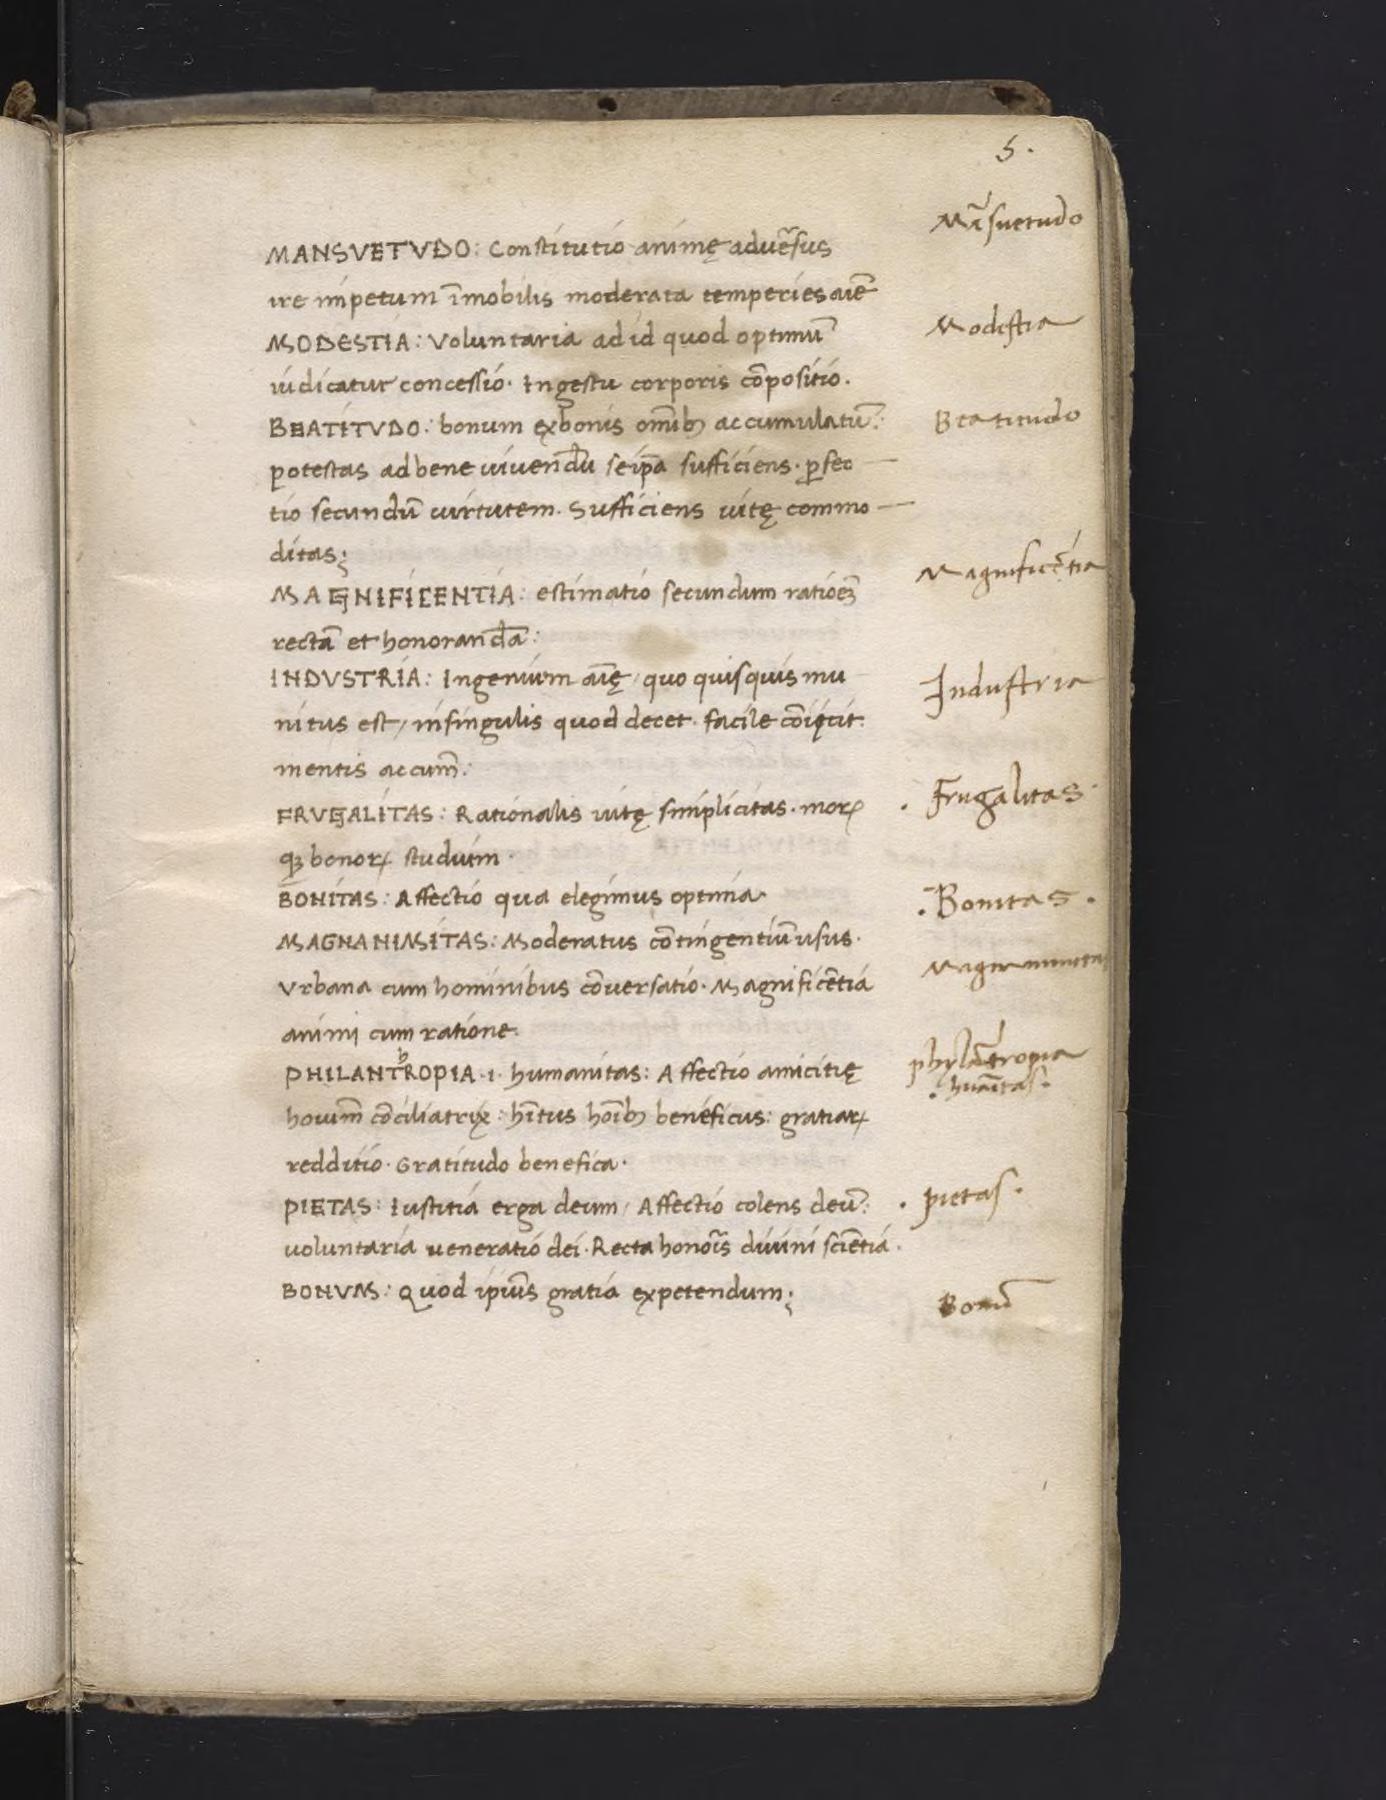 5.
Mãsuetudo
MANSVETVDO: Constitutio animę aduẽsus
ire impetum ĩmobilis moderata temperies aiẽ
Modestia
MODESTIA: Voluntaria ad id quod optimũ
iudicatur concessio. In gestu corporis cõpositio.
Beatitudo
BEATITVDO: bonum ex bonis omĩbꝫ accumulatũ:
potestas ad bene uiuendũ seip̃a sufficiens. ꝑfec
tio secundũ uirtutem. Sufficiens uitę commo
ditas;
Magnificẽtia
MAGNIFICENTIA: estimatio secundum ratiõeꝫ
rectã et honorandã:
Industria
INDVSTRIA: Ingenium aĩę, quo quisquis mu
nitus est, in singulis quod decet. facile cõiicit.
mentis accumẽ:
. Frugalitas.
FRVGALITAS: Rationalis uitę simplicitas. moꝝ
qꝫ bonoꝝ studium.
. Bonitas .
BONITAS: Affectio qua elegimus optima.
MAGNANIMITAS: Moderatus cõtingentiũ usus.
Magnanimitas
Vrbana cum hominibus cõuersatio. Magnificẽtia
animi cum ratione.
phylãtropia
. huãitas.
PHILANTHROPIA .i. humanitas: Affectio amicitię
hoium̃ cõciliatrix: hĩtus hoĩbꝫ beneficus: gratiaꝝ
redditio. Gratitudo benefica.
. pietas.
PIETAS: Iustitia erga deum, Affectio colens deũ:
uoluntaria ueneratio dei. Recta honoĩs diuini sciẽtia.
BONVM: Quod ip̃ius gratia expetendum;
Bonũ